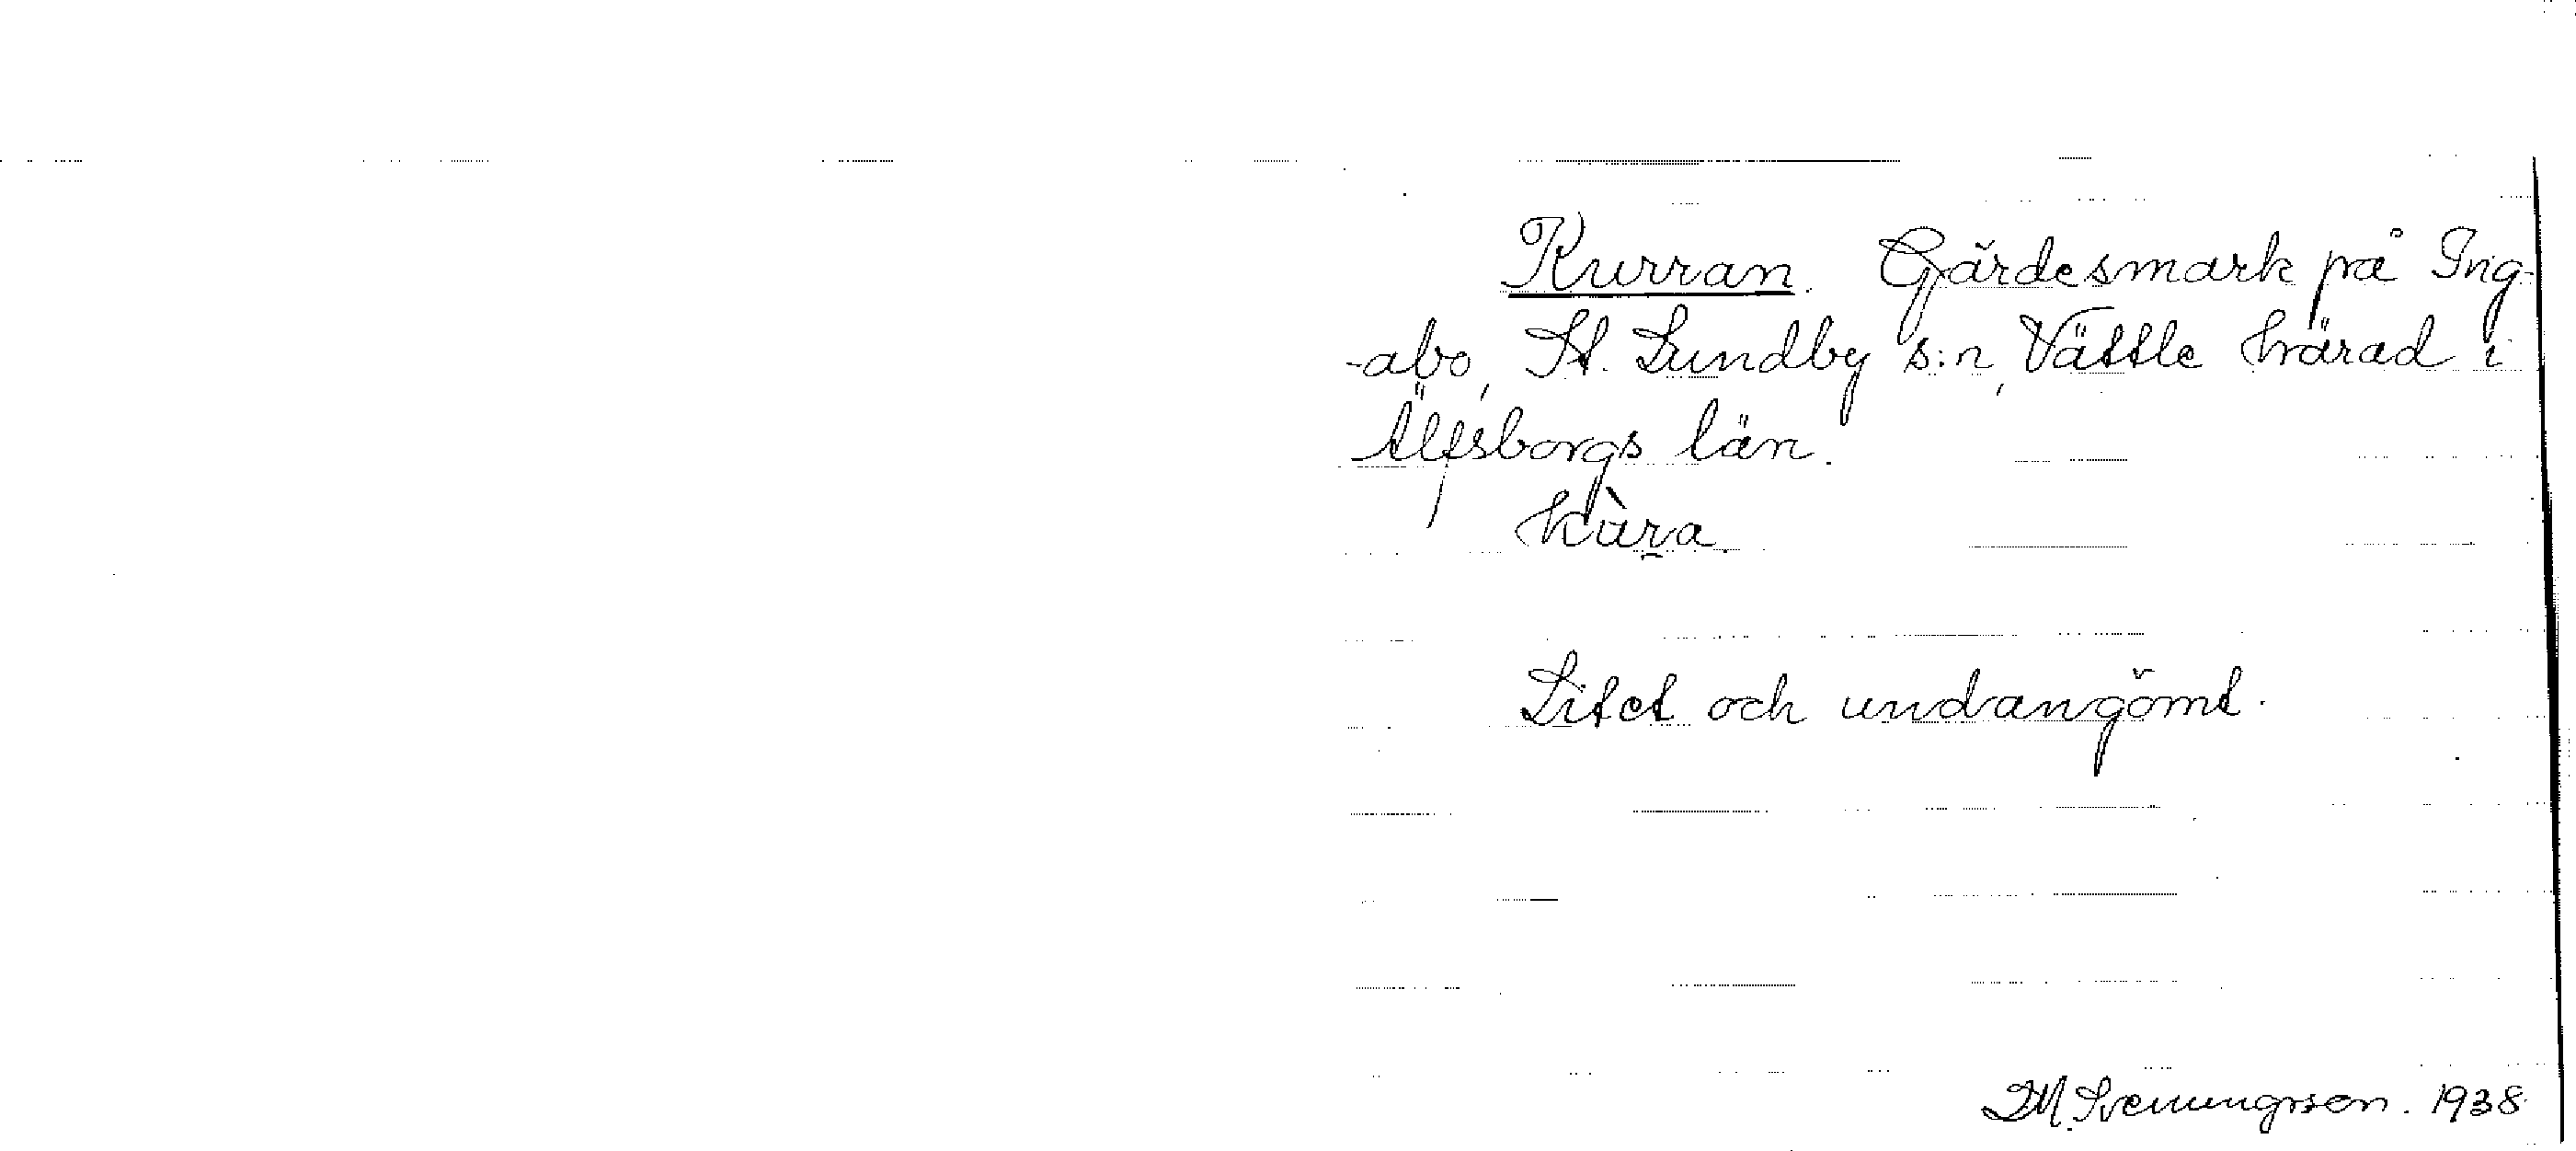 Kurran. Gärdesmark på Ing-
-abo, St. Lundby s:n, Vättle härad i
Älfsborgs län.
kùra
Litet och undangömt.
Svenungsson. 1938